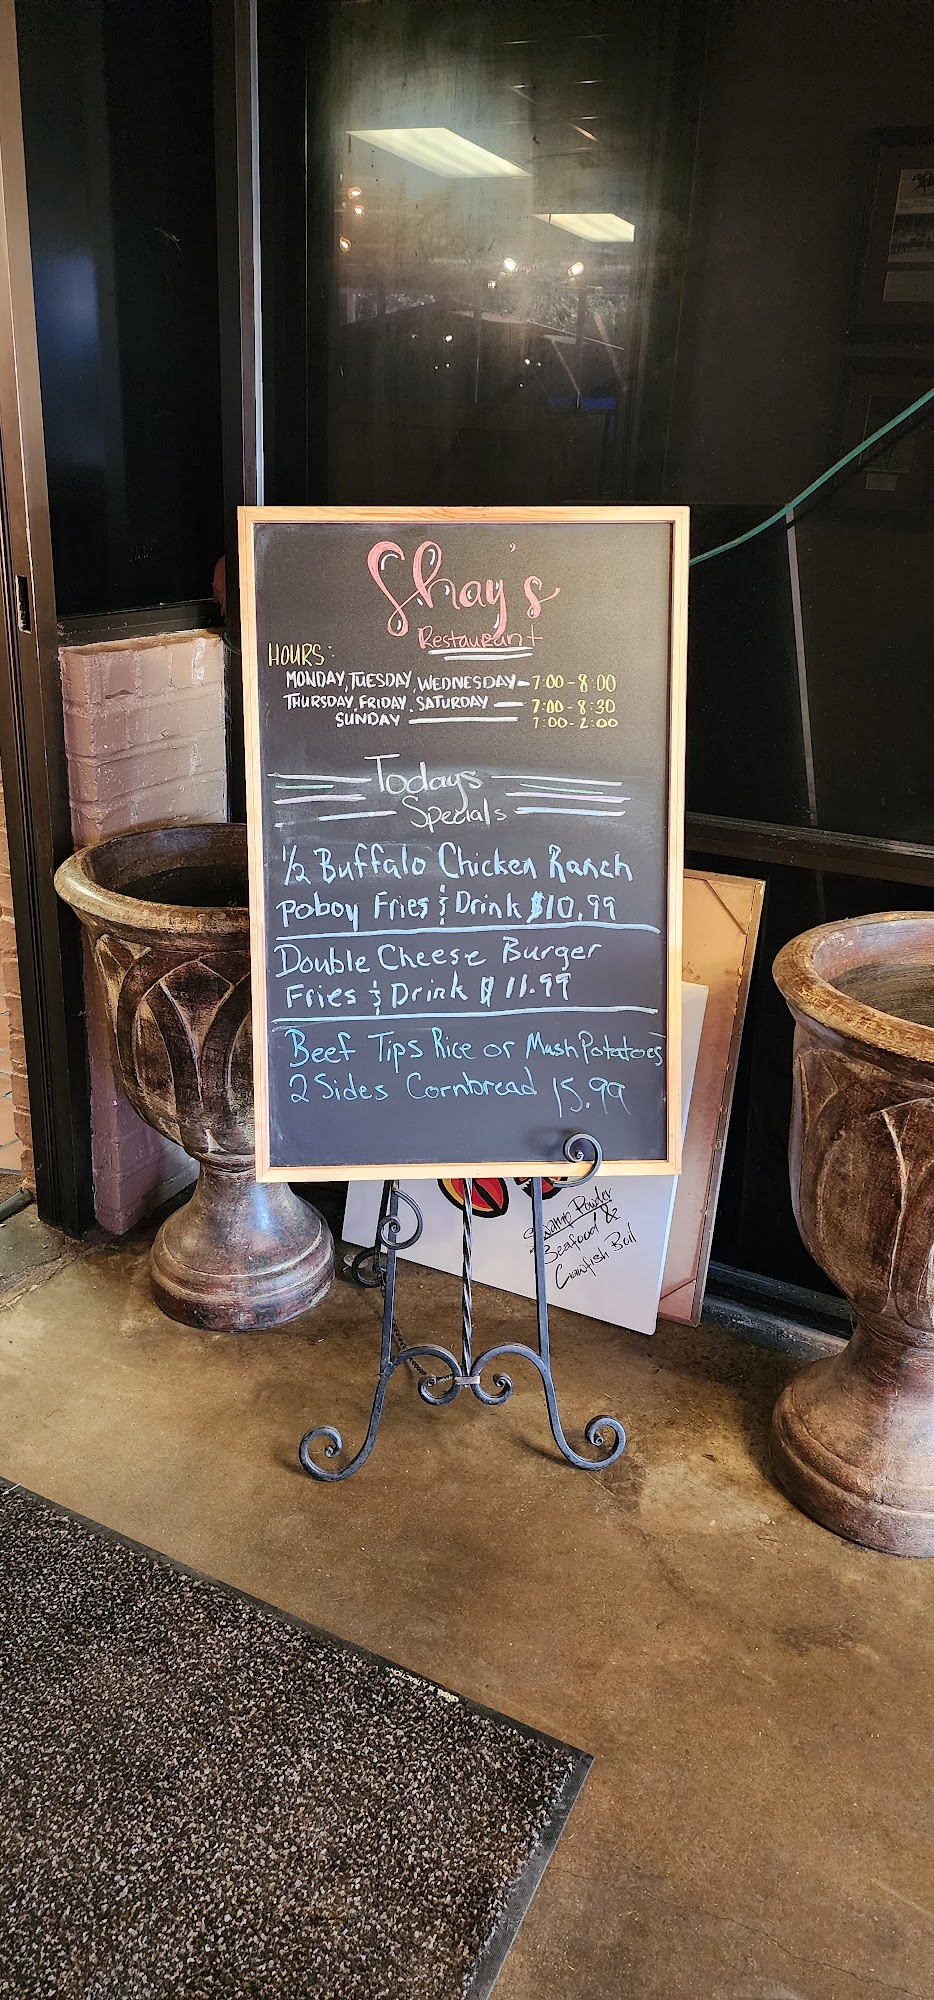 Shay's
Restaurant
HOURS:
MONDAY, TUESDAY, WEDNESDAY - 7:00 - 8:00
THURSDAY, FRIDAY, SATURDAY — 7:00 - 8:30
SUNDAY — 7:00 - 2:00
Todays
Specials
1/2 Buffalo Chicken Ranch
poboy Fries & Drink $10.99
Double Cheese Burger
Fries & Drink $11.99
Beef Tips Rice or Mash Potatoes
2 Sides Cornbread 15.99
Swamp Powder
Seafood &
Crawfish Boil